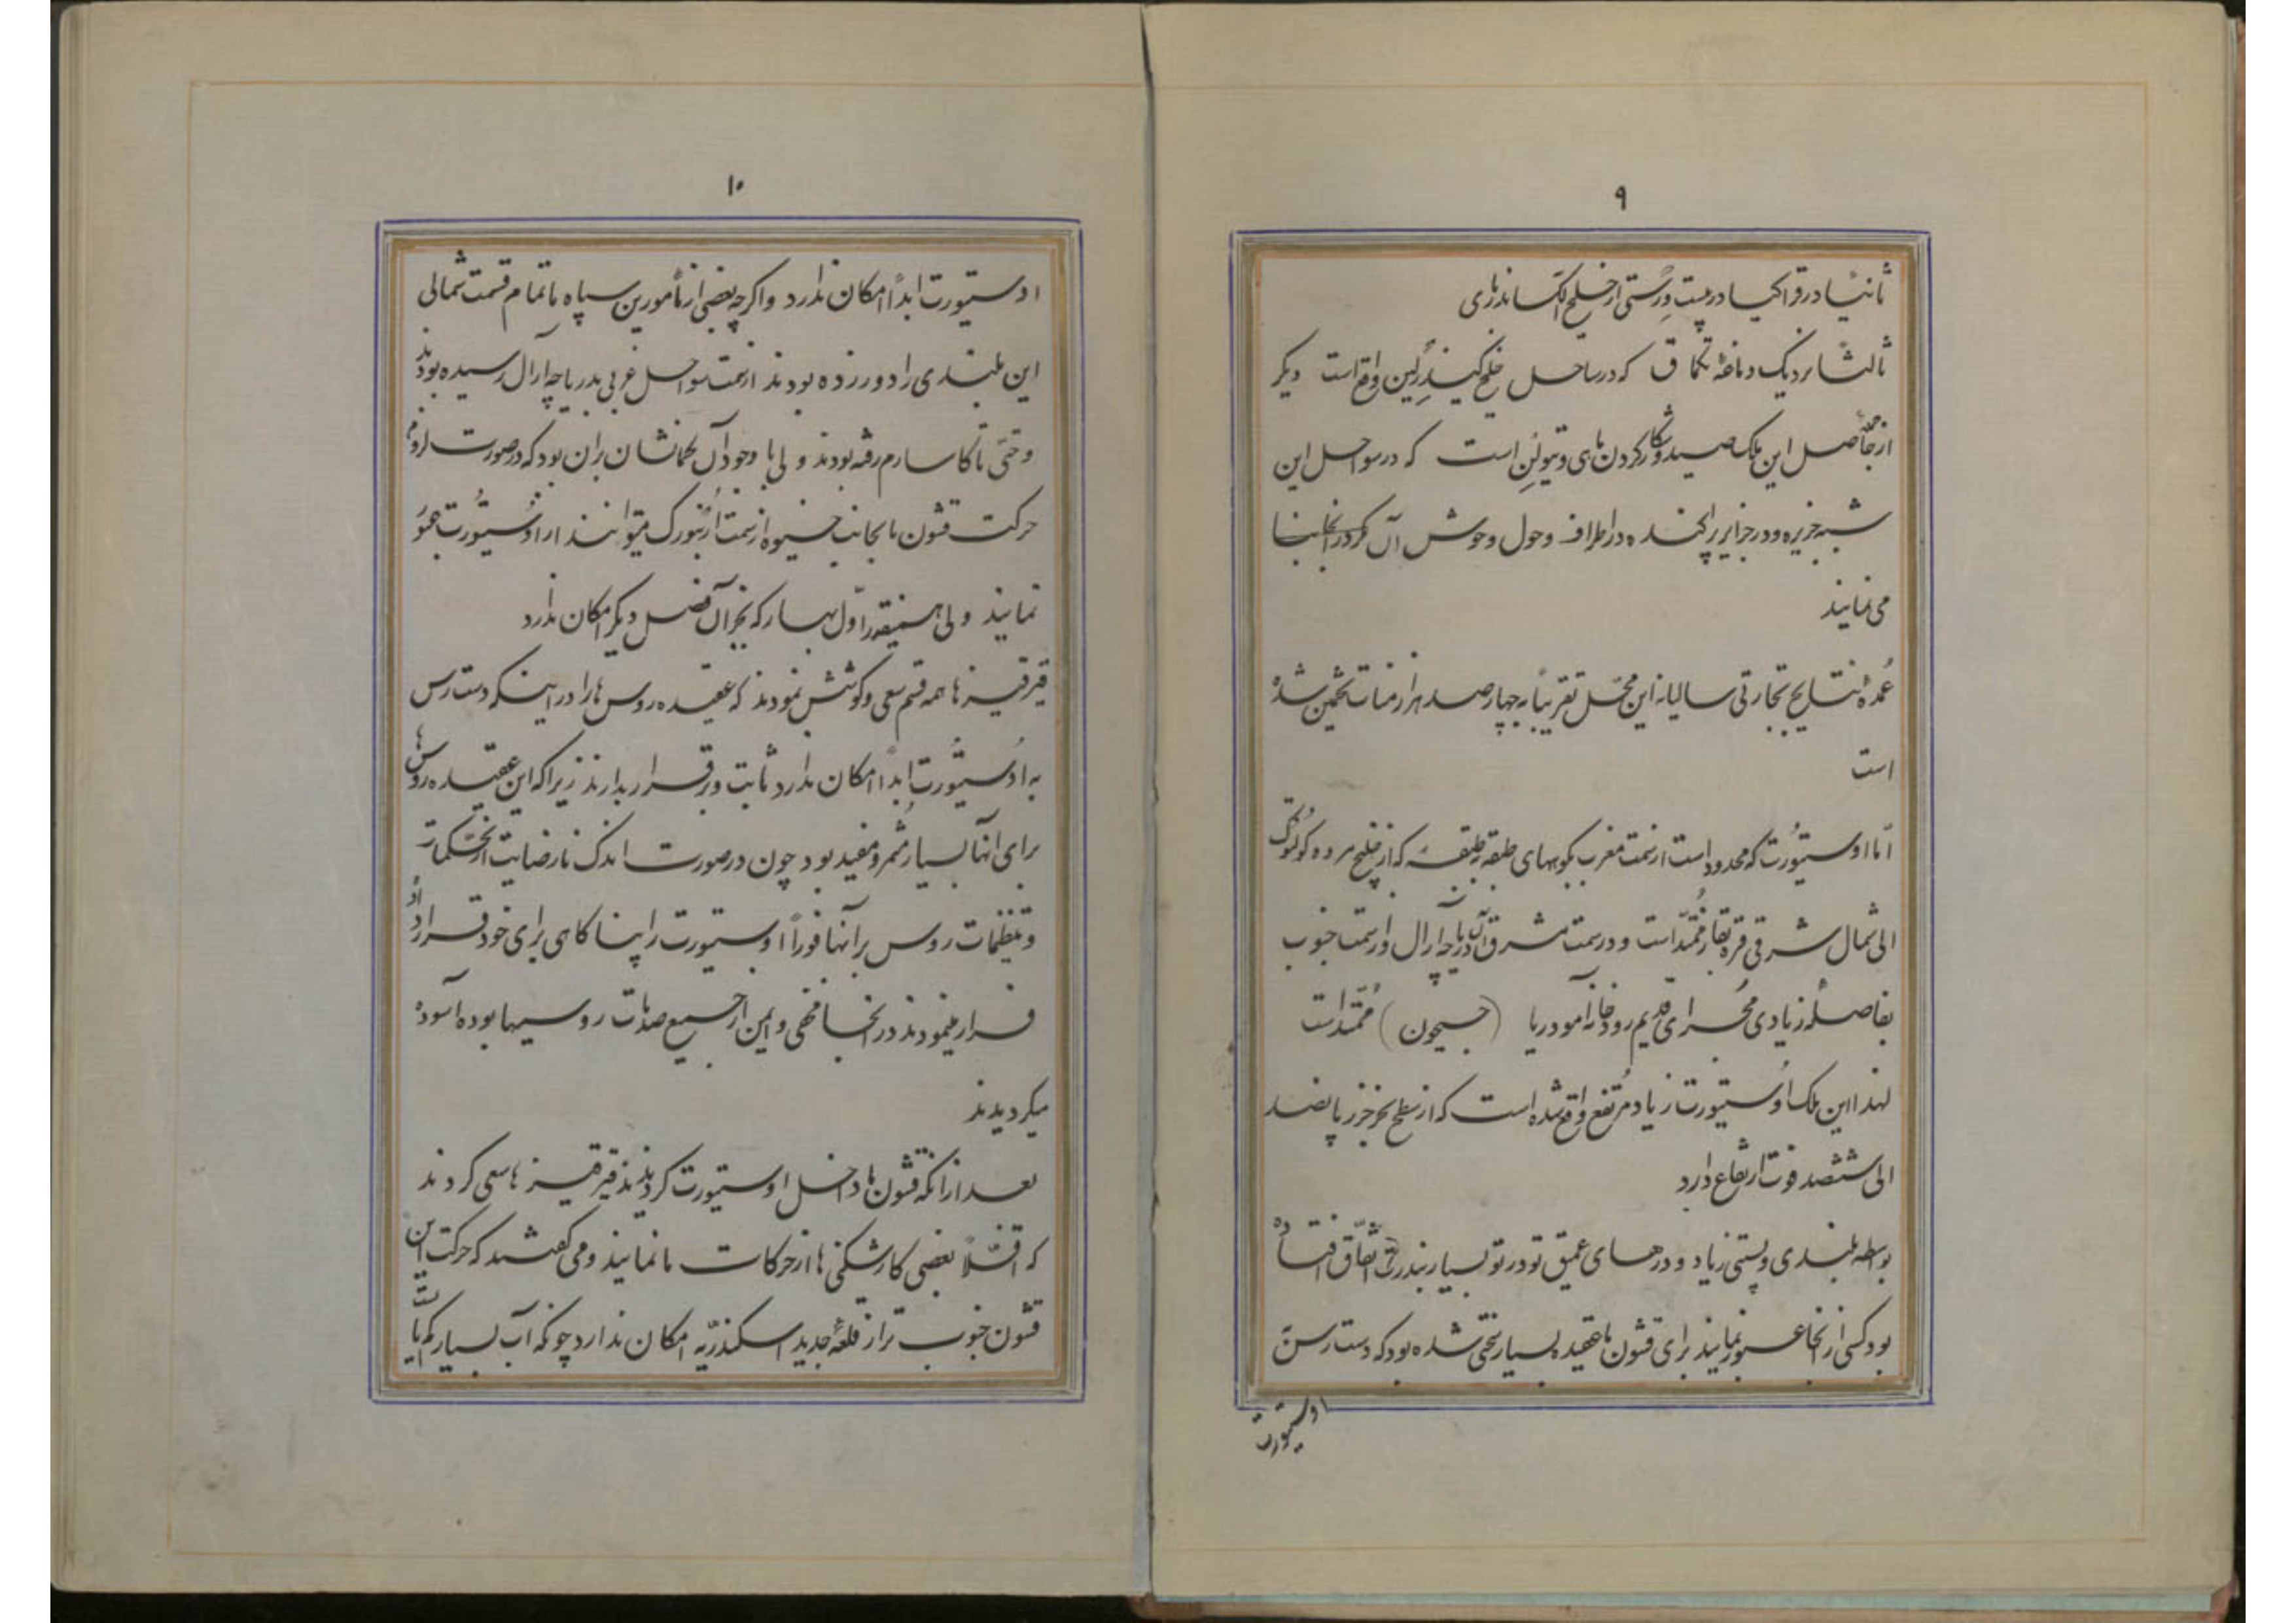 ۹
ثانیاً در قراکیا در بیست ورستی از خلیج الکساندرهای
ثالثاً نزدیک دماغهٔ تکماق که در ساحل خلیج کیندرلین واقع است دیگر
از حاصل این ملک صید و شکار کردن های و تیولن است که در سواحل این
شبه جزیره و در جزایر پراکنده در اطراف و حول و حوش آن کرور انجا بنا
می نمایند
عمدهٔ نتایج تجارتی سالیانه این محل تقریباً به چهار صد هزار منات تخمین شده
است
اما اوستیورت که محدود است از سمت مغرب بکوههای طبقه بطبقه که از خلیج مرده کولتوک
الی شمال شرقی قره بقاز ممتد است و در سمت مشرق آن دریاچه ارال و از سمت جنوب
بفاصلهٔ زیادی مجرای قدیم رودخانه آمودریا (جیحون) ممتد است
لهذا این ملک اوستیورت زیاد مرتفع واقع شده است که از سطح بحر خزر پانصد
الی ششصد فوت ارتفاع دارد
بواسطه بلندی و پستی زیاد و درهای عمیق تو در تو بسیار بندرت اتفاق افتاده
بود کسی از انجا عبور نمایند برای قشون ما عقیده بسیار سختی شده بود که دست رسن
اوستیورت
۱۰
اوستیورت ابداً امکان ندارد و اگر چه بعضی از مأمورین سپاه ما تمام قسمت شمالی
این بلندی را دور زده بودند از سمت سواحل غربی بدریاچه آرال رسیده بودند
و حتی تا کاسارم رفته بودند ولی با وجود آن کمانشان بران بود که در صورت لزوم
حرکت قشون ما بجانب خیوه از سمت ارنبورک میتوانند از اوستیورت عبور
نمایند ولی همینقدر اول بهار که بجز آن فصل دیگر امکان ندارد
قیرقیزها همه قسم سعی و کوشش نمودند که عقیده روس ها را در اینکه دست رس
به اوستیورت ابداً امکان ندارد ثابت و برقرار بدارند زیرا که این عقیده روسها
برای آنها بسیار مثمر و مفید بود چون در صورت اندک نارضایت از تحکمات
و تنظیمات روس بر آنها فوراً اوستیورت را پناکاهی برای خود قرار داده
فرار مینمودند در انجا مخفی و ایمن از جمیع صدمات روسیها بوده آسوده
میکردیدند
بعد از انکه قشون ها داخل اوستیورت کردیدند قیرقیز ها سعی کردند
که اقلاً بعضی کارشکنی ها از حرکات ما نمایند و می گفتند که حرکت این
قشون جنوب تر از قلعهٔ جدید اسکندریه امکان ندارد چونکه آب بسیار کم یابست